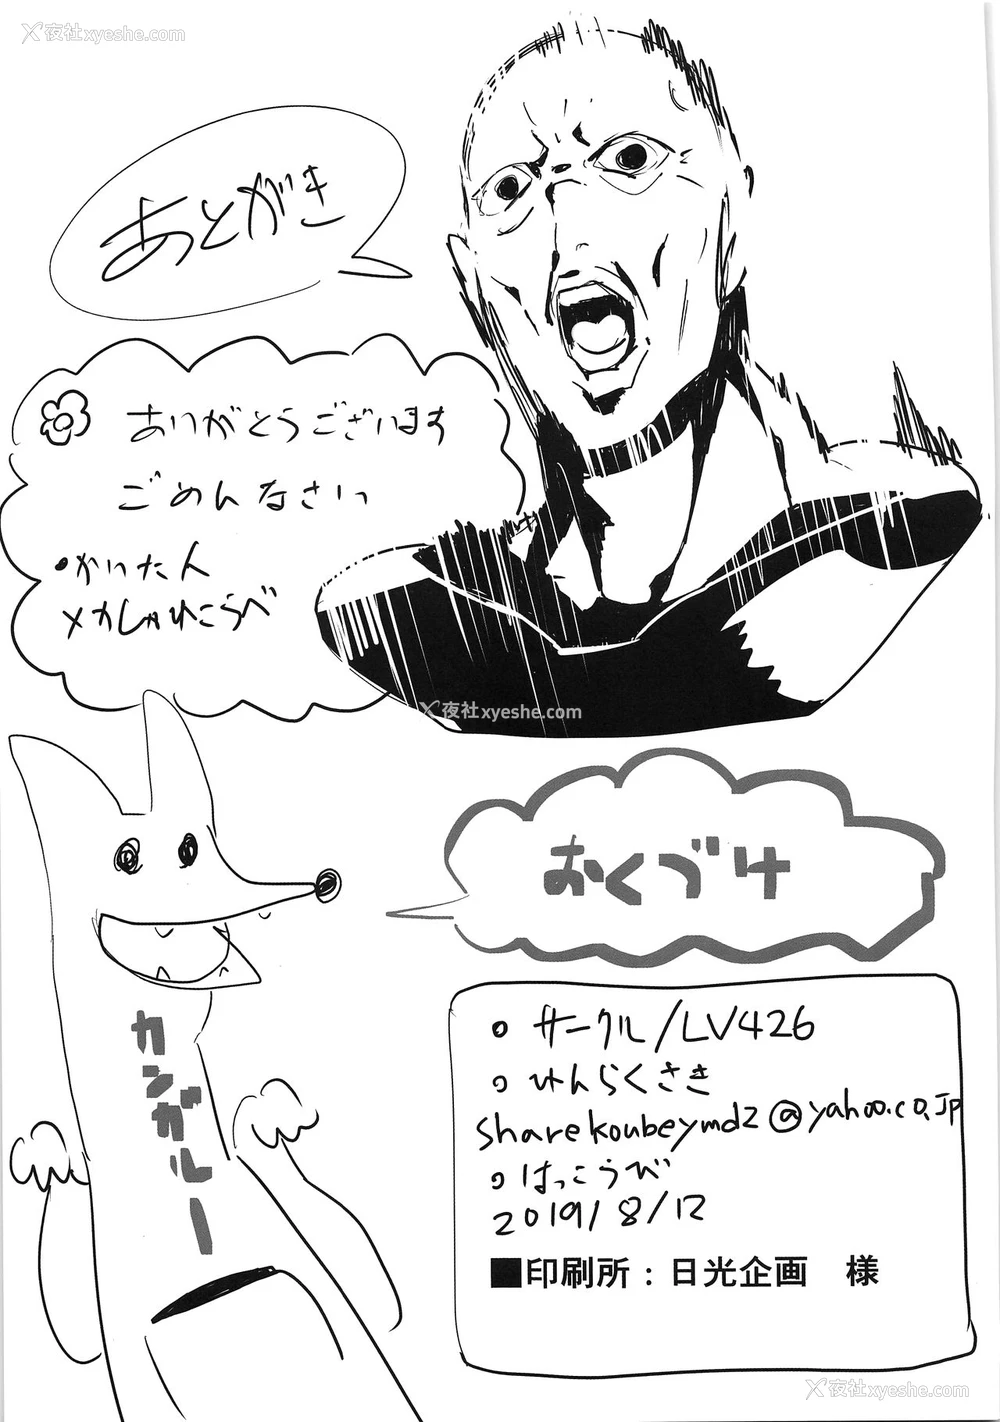 夜社xyeshe.com
あとがき
ありがとうございます
ごめんなさいっ
・かいた人
メカしゃれこうべ
夜社xyeshe.com
おくづけ
カンガルー
サークル/LV426
れんらくさき
sharekoubeymdz@yahoo.co.jp
はっこうび
2019/8/12
■印刷所：日光企画 様
夜社xyeshe.com